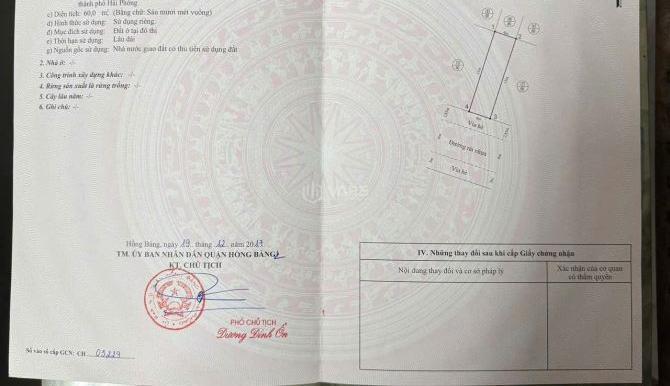 thành phố Hải Phòng
c) Diện tích: 60,0 m² (Bằng chữ: Sáu mươi mét vuông)
d) Hình thức sử dụng: Sử dụng riêng.
đ) Mục đích sử dụng: Đất ở tại đô thị
e) Thời hạn sử dụng: Lâu dài
g) Nguồn gốc sử dụng: Nhà nước giao đất có thu tiền sử dụng đất
2. Nhà ở: -/-
3. Công trình xây dựng khác: -/-
4. Rừng sản xuất là rừng trồng: -/-
5. Cây lâu năm: -/-
6. Ghi chú: -/-
Hồng Bàng, ngày 19 tháng 12 năm 2017
TM. ỦY BAN NHÂN DÂN QUẬN HỒNG BÀNG
KT. CHỦ TỊCH
PHÓ CHỦ TỊCH
Dương Đình Ổn
Số vào sổ cấp GCN: CH 05229
1
2
4
3
Vỉa hè
Đường rải nhựa
Vỉa hè
IV. Những thay đổi sau khi cấp Giấy chứng nhận
Nội dung thay đổi và cơ sở pháp lý
Xác nhận của cơ quan
có thẩm quyền